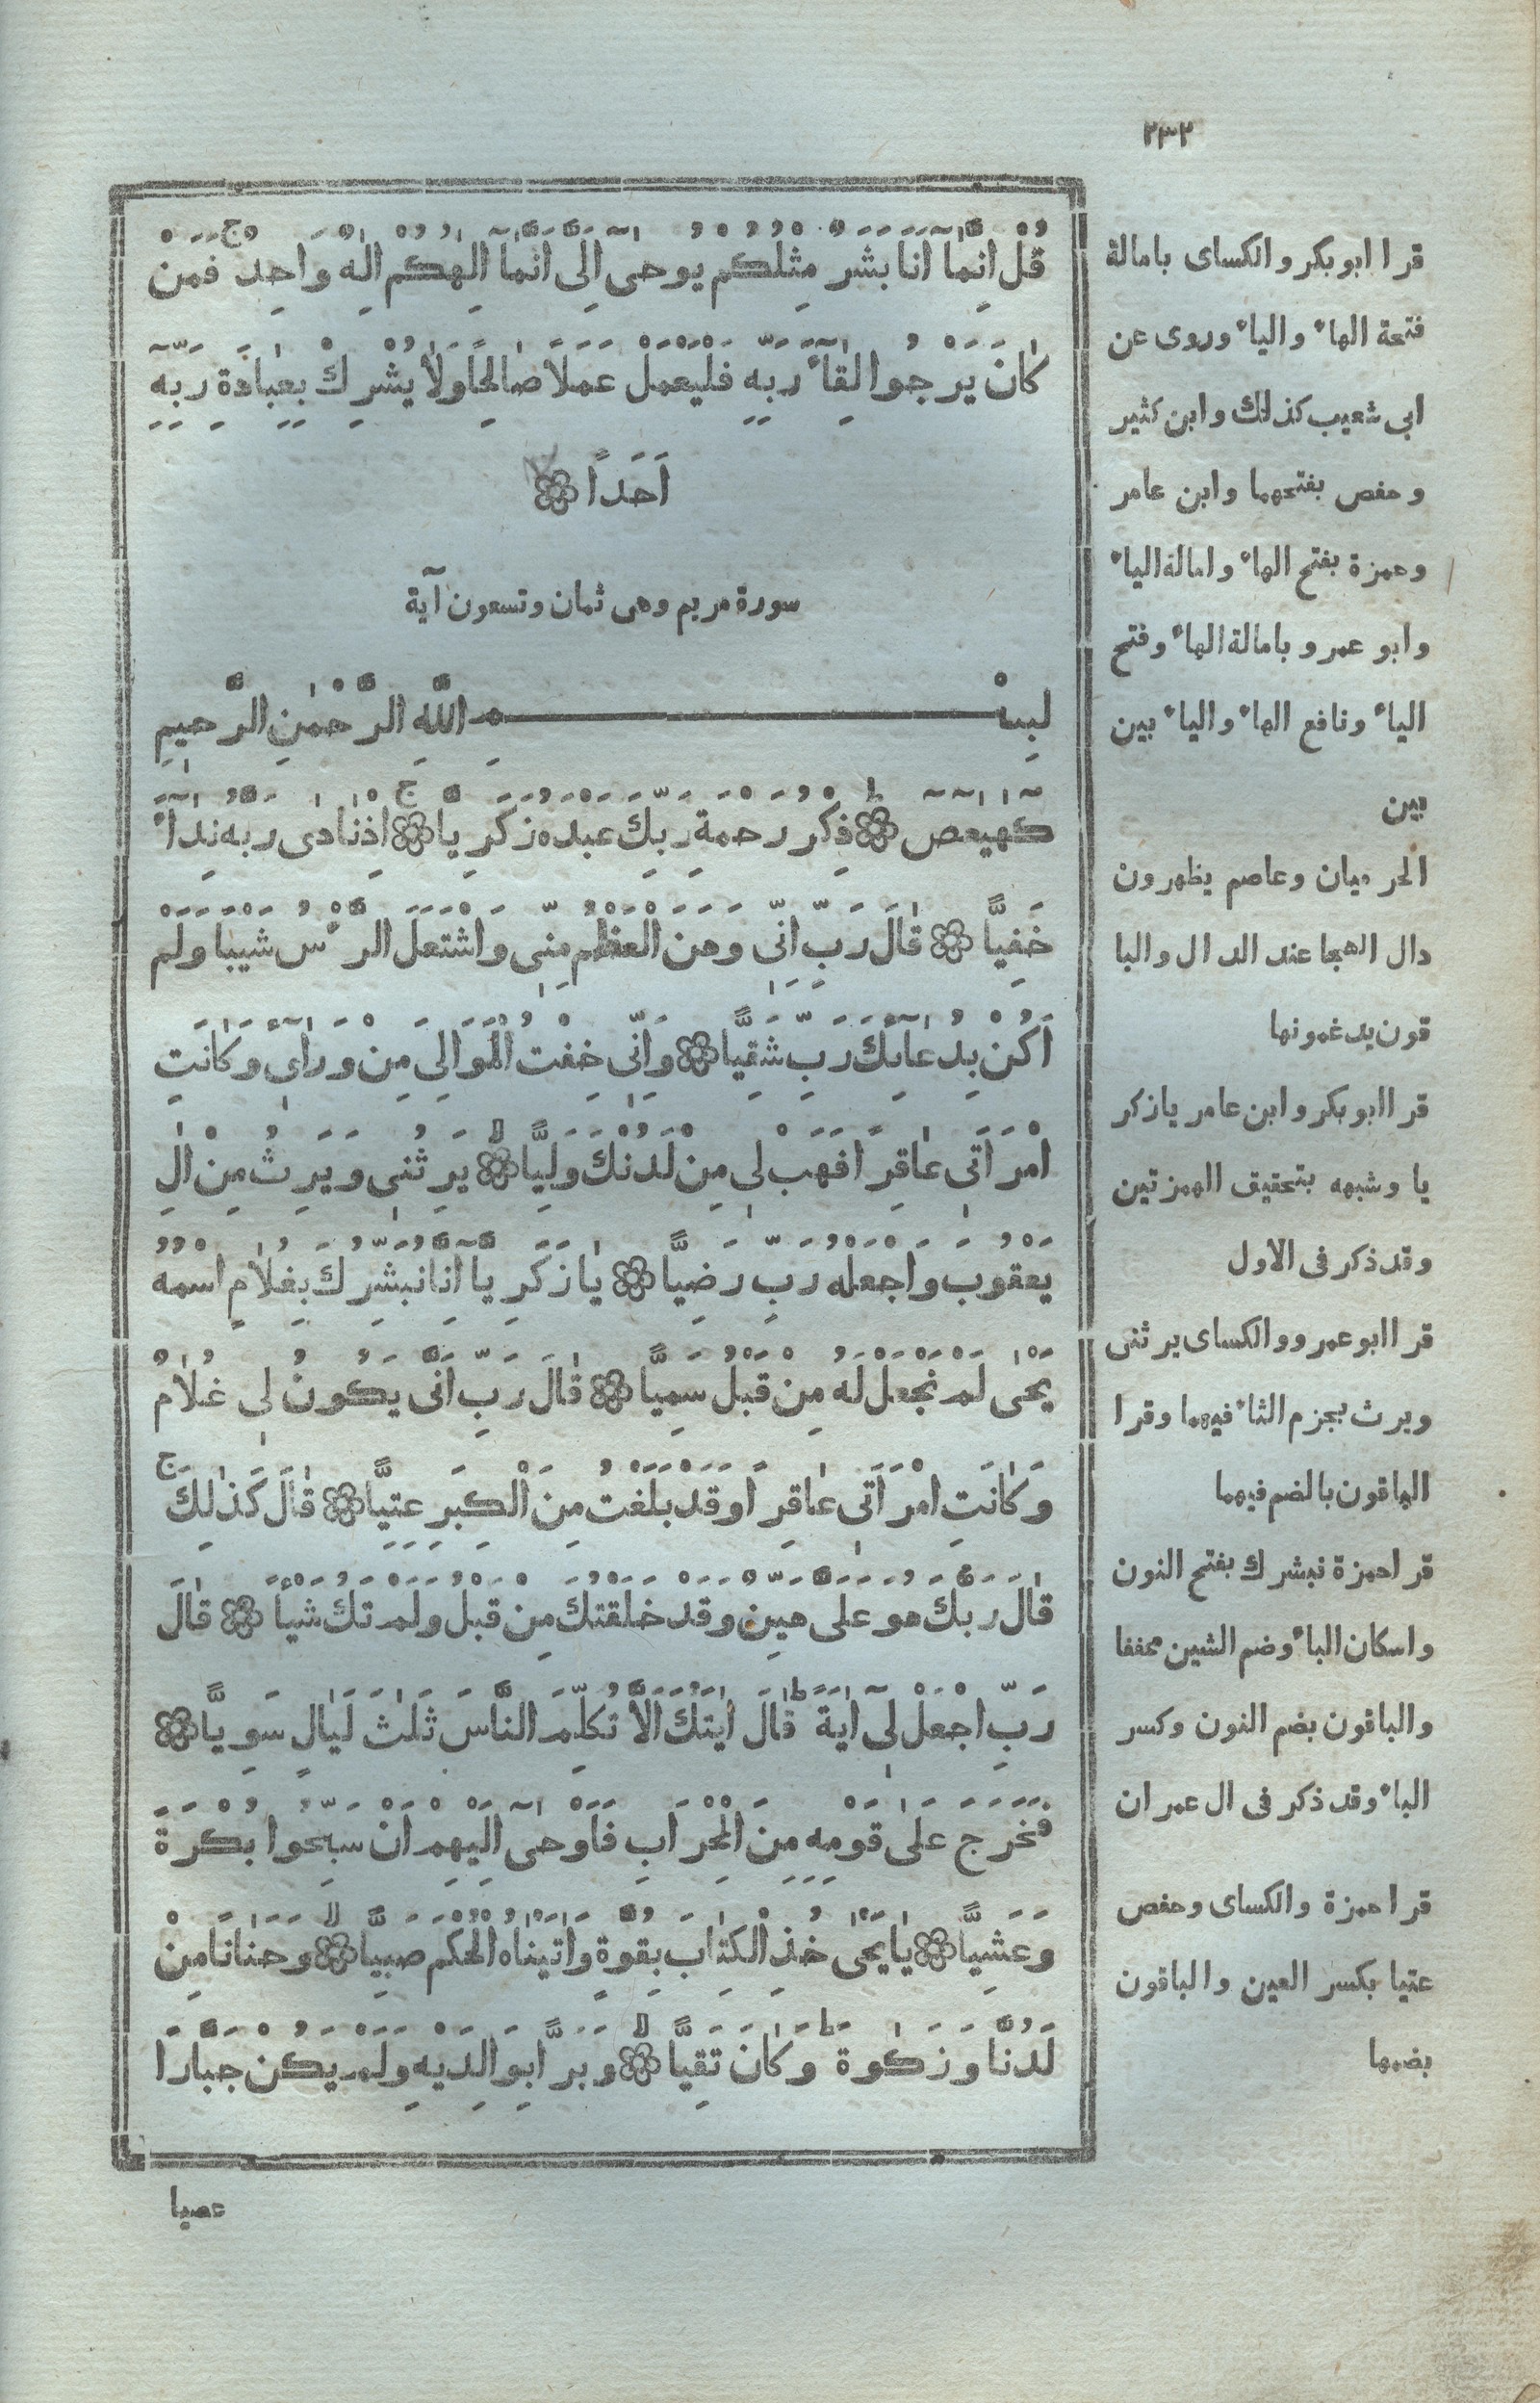 ٢٣٢
قُلْ اِنَّمَآ اَنَا بَشَرٌ مِثْلُكُمْ يُوحٰٓى اِلَىَّ اَنَّمَآ اِلٰهُكُمْ اِلٰهٌ وَاحِدٌ ج فَمَنْ
كَانَ يَرْجُوا لِقَآءَ رَبِّهٖ فَلْيَعْمَلْ عَمَلًا صَالِحًا وَلَا يُشْرِكْ بِعِبَادَةِ رَبِّهٖٓ
اَحَدًا
سورة مريم وهى ثمان وتسعون آية
بِسْمِ اللّٰهِ الرَّحْمٰنِ الرَّحِيمِ
كٓهٰيٰعٓصٓ ط ذِكْرُ رَحْمَةِ رَبِّكَ عَبْدَهُ زَكَرِيَّا ج اِذْ نَادٰى رَبَّهُ نِدَآءً
خَفِيًّا قَالَ رَبِّ اِنِّى وَهَنَ الْعَظْمُ مِنِّى وَاشْتَعَلَ الرَّءْسُ شَيْبًا وَلَمْ
اَكُنْ بِدُعَآئِكَ رَبِّ شَقِيًّا وَاِنِّى خِفْتُ الْمَوَالِىَ مِنْ وَرَآءِى وَكَانَتِ
امْرَاَتٖى عَاقِرًا فَهَبْ لٖى مِنْ لَدُنْكَ وَلِيًّا لا يَرِثُنٖى وَيَرِثُ مِنْ اٰلِ
يَعْقُوبَ وَاجْعَلْهُ رَبِّ رَضِيًّا يَا زَكَرِيَّآ اِنَّا نُبَشِّرُكَ بِغُلَامٍ اسْمُهُ
يَحْيٰى لَمْ نَجْعَلْ لَهُ مِنْ قَبْلُ سَمِيًّا قَالَ رَبِّ اَنّٰى يَكُونُ لٖى غُلَامٌ
وَكَانَتِ امْرَاَتٖى عَاقِرًا وَقَدْ بَلَغْتُ مِنَ الْكِبَرِ عِتِيًّا قَالَ كَذٰلِكَ ج
قَالَ رَبُّكَ هُوَ عَلَىَّ هَيِّنٌ وَقَدْ خَلَقْتُكَ مِنْ قَبْلُ وَلَمْ تَكُ شَيْأً قَالَ
رَبِّ اجْعَلْ لٖىٓ اٰيَةً ط قَالَ اٰيَتُكَ اَلَّا تُكَلِّمَ النَّاسَ ثَلٰثَ لَيَالٍ سَوِيًّا
فَخَرَجَ عَلٰى قَوْمِهٖ مِنَ الْمِحْرَابِ فَاَوْحٰٓى اِلَيْهِمْ اَنْ سَبِّحُوا بُكْرَةً
وَعَشِيًّا يَا يَحْيٰى خُذِ الْكِتَابَ بِقُوَّةٍ وَاٰتَيْنَاهُ الْحُكْمَ صَبِيًّا لا وَحَنَانًا مِنْ
لَدُنَّا وَزَكٰوةً ط وَكَانَ تَقِيًّا لا وَبَرًّا بِوَالِدَيْهِ وَلَمْ يَكُنْ جَبَّارًا
عصيا
قرا ابو بكر والكساى بامالة
فتحة الهاء والياء وروى عن
ابى شعيب كذلك وابن كثير
وحفص بفتحهما وابن عامر
وحمزة بفتح الهاء وامالة الياء
وابو عمرو بامالة الهاء وفتح
الياء ونافع الهاء والياء بين
بين
الحرميان وعاصم يظهرون
دال الهجا عند الدال والبا
قون يدغمونها
قرا ابو بكر وابن عامر يا زكر
يا وشبهه بتحقيق الهمزتين
وقد ذكر فى الاول
قرا ابو عمرو والكساى يرثنى
ويرث بجزم الثاء فيهما وقرا
الباقون بالضم فيهما
قرا حمزة نبشرك بفتح النون
واسكان الباء وضم الشين مخففا
والباقون بضم النون وكسر
الباء وقد ذكر فى ال عمران
قرا حمزة والكساى وحفص
عتيا بكسر العين والباقون
بضمها